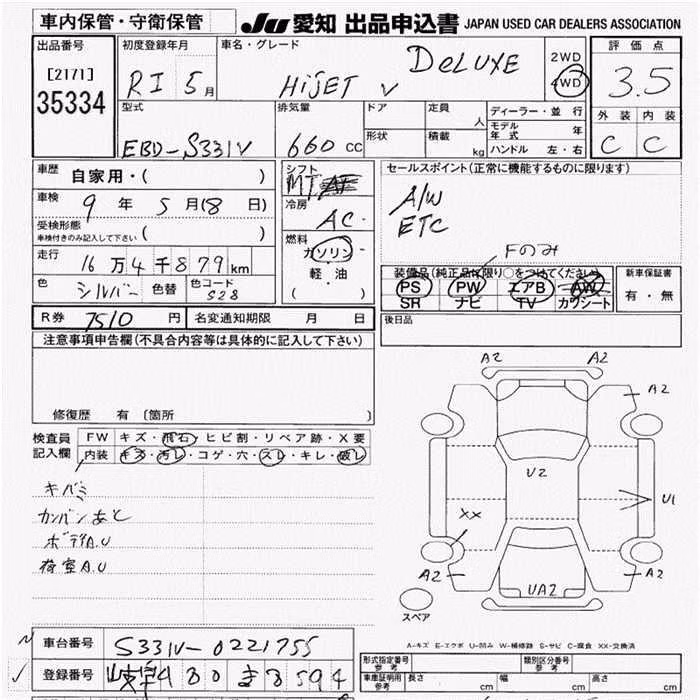 車内保管・守衛保管
JU 愛知 出品申込書 JAPAN USED CAR DEALERS ASSOCIATION
出品番号
[2171]
35334
初度登録年月
R1 5月
車名・グレード
HiJET V DELUXE
2WD
4WD
評価点
3.5
外装 内装
C C
型式
EBD-S331V
排気量
660 CC
ドア
形状
定員 人
積載 kg
ディーラー・並行
モデル年式 年
ハンドル 左・右
車歴
自家用・( )
車検
9年 5月(8日)
受検形態
車検付きのみ記入して下さい ( )
走行
16万4千879km
色
シルバー
色替
色コード
S28
シフト
MT AT
冷房
AC
燃料
ガソリン
軽・油
( )
セールスポイント(正常に機能するものに限ります)
A/W
ETC
Fのみ
装備品(純正品に限り○をつけてください)
PS PW エアB AW
SR ナビ TV カワシート
新車保証書
有・無
R券 7510円
名変通知期限 月 日
後日品
注意事項申告欄(不具合内容等は具体的に記入して下さい)
修復歴 有 〔箇所 〕
検査員
記入欄
FW キズ・飛石・ヒビ割・リペア跡・X要
内装 キズ・汚レ・コゲ・穴・スレ・キレ・破レ
キバミ
カンバンあと
ボデAU
荷室A.U
A2 A2
A2
U2
U1
XX
A2
UA2
A2
スペア
A-キズ E-エクボ U-凹み W-補修跡 S-サビ C-腐食 XX-交換済
車台番号 S331V-0221755
登録番号 岐阜480 ま8594
形式指定番号
参考
類別区分番号
参考
車庫証明用
参考
長さ cm
幅 cm
高さ cm